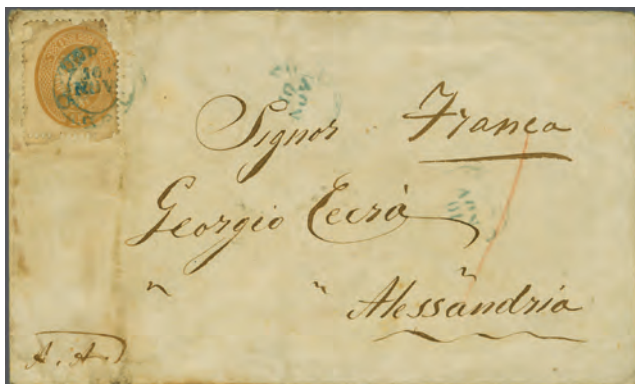 10
NOV
NOV
Signor Franca
Georgio
NOV
" " "
Alessandria
A. A.